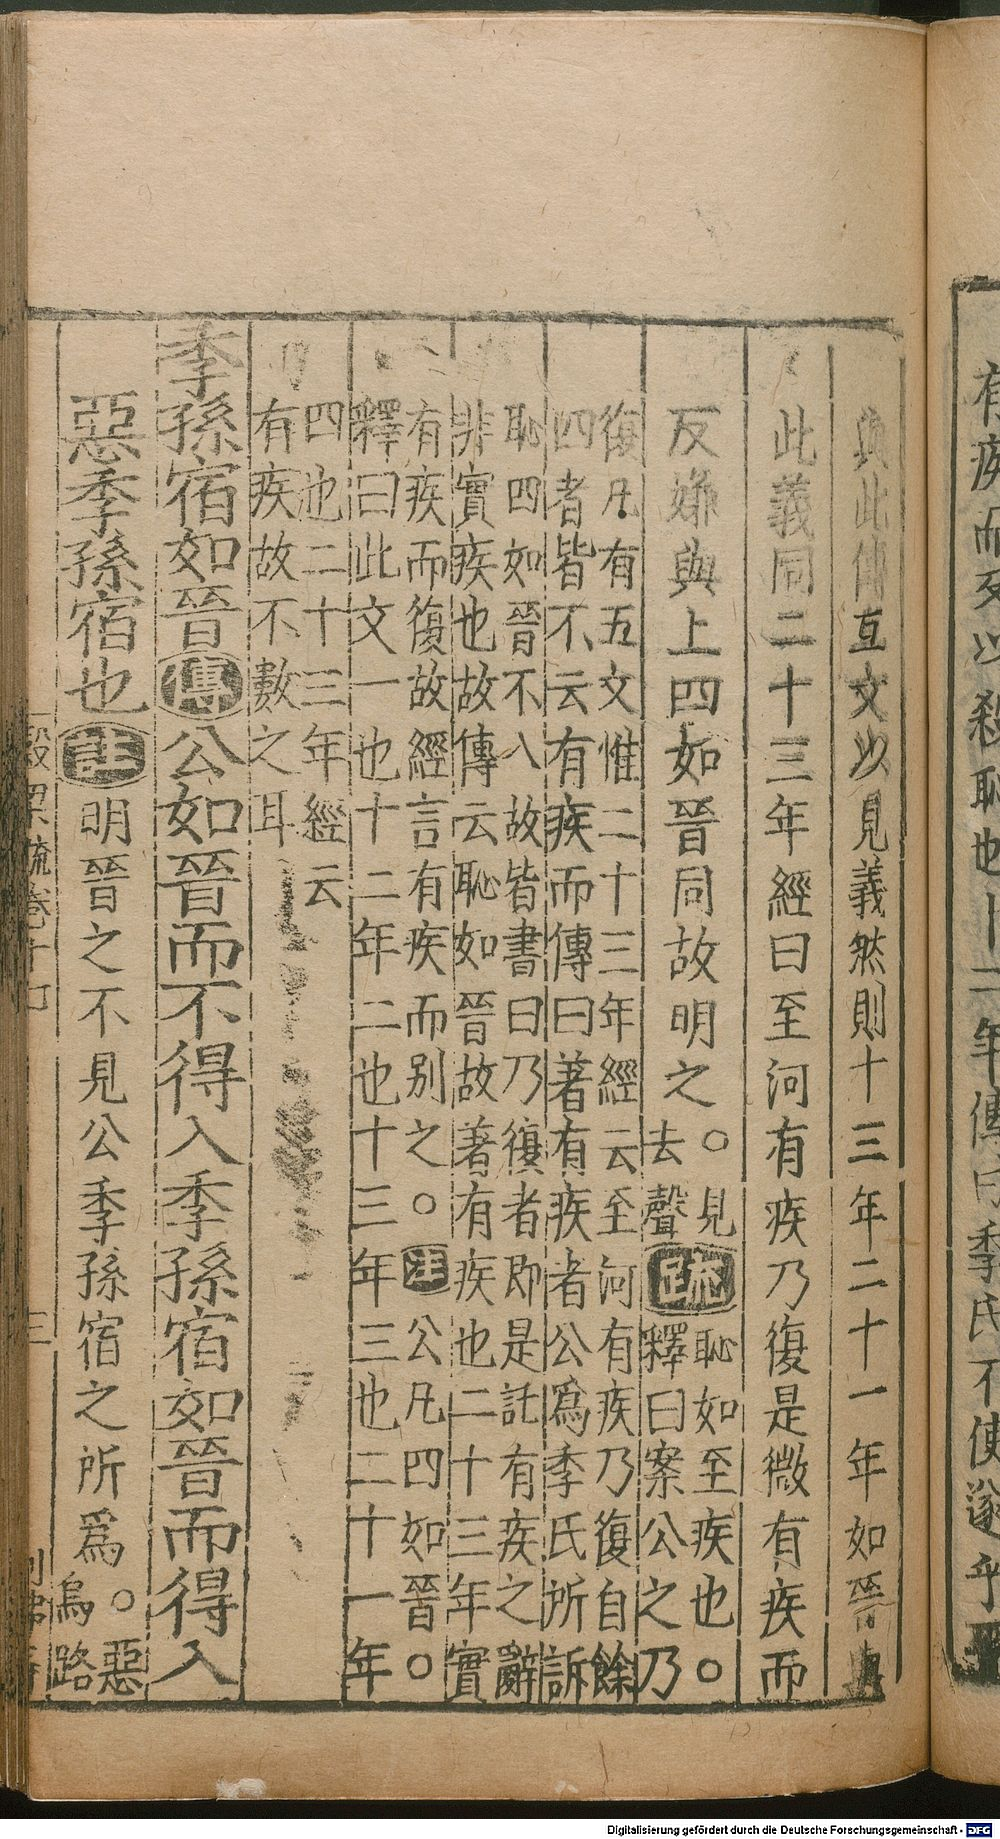 有疾而死以殺恥也十二年傳曰季氏不使遂乎
與此傳互文以見義然則十三年二十一年如晉與
此義同二十三年經曰至河有疾乃復是微有疾而
反嫌與上四如晉同故明之○見
去聲疏恥如至疾也○
釋曰案公之乃
復凡有五文惟二十三年經云至河有疾乃復自餘
四者皆不云有疾而傳曰著有疾者公為季氏所訴
恥四如晉不入故皆書曰乃復者即是託有疾之辭
非實疾也故傳云恥如晉故著有疾也二十三年實
有疾而復故經言有疾而別之○注公凡四如晉○
釋曰此文一也十二年二也十三年三也二十一年
四也二十三年經云
有疾故不數之耳
季孫宿如晉傳公如晉而不得入季孫宿如晉而得入
惡季孫宿也注明晉之不見公季孫宿之所為○惡
烏路
穀梁疏卷十
三
Digitalisierung gefördert durch die Deutsche Forschungsgemeinschaft - DFG